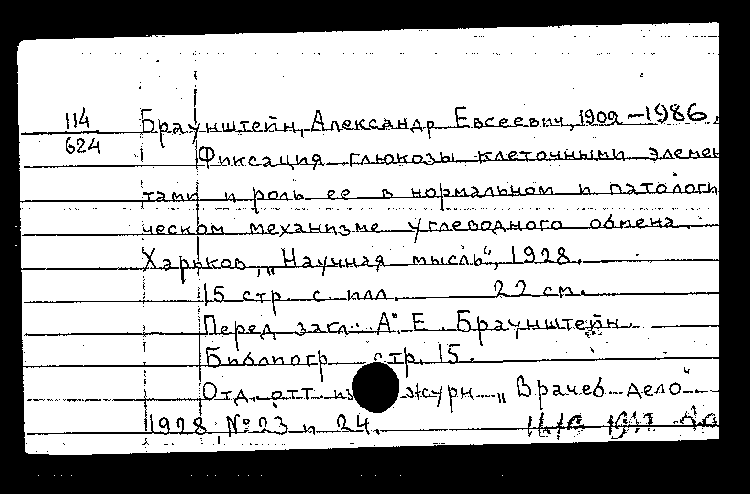 114
624
Браунштейн, Александр Евсеевич, 1902-1986.
Фиксация глюкозы клеточными элемен
тами и роль ее в нормальном и патологи
ческом механизме углеводного обмена.
Харьков, „Научная мысль", 1928.
15 стр. с илл. 22 см.
Перед загл.: А. Е. Браунштейн
Библиогр. стр. 15.
Отд. отт. из журн. „Врачеб. дело"
1928, № 23 и 24.